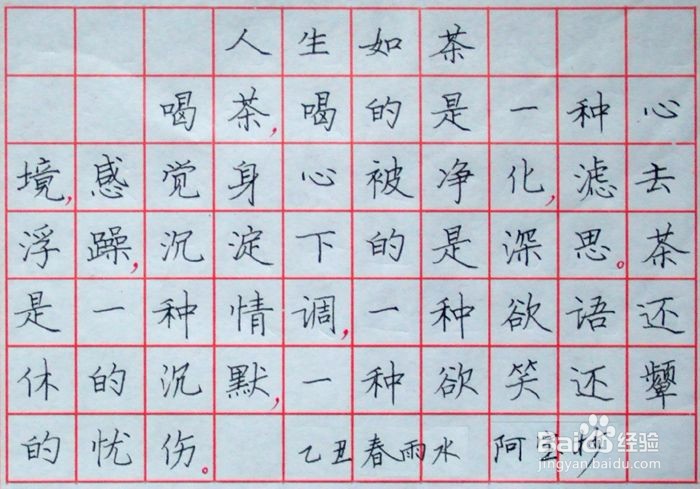 人生如茶
喝茶,喝的是一种心
境,感觉身心被净化,滤去
浮躁,沉淀下的是深思。茶
是一种情调,一种欲语还
休的沉默,一种欲笑还颦
的忧伤。 乙丑春雨水 阿
Baidu经验
jingyan.baidu.com